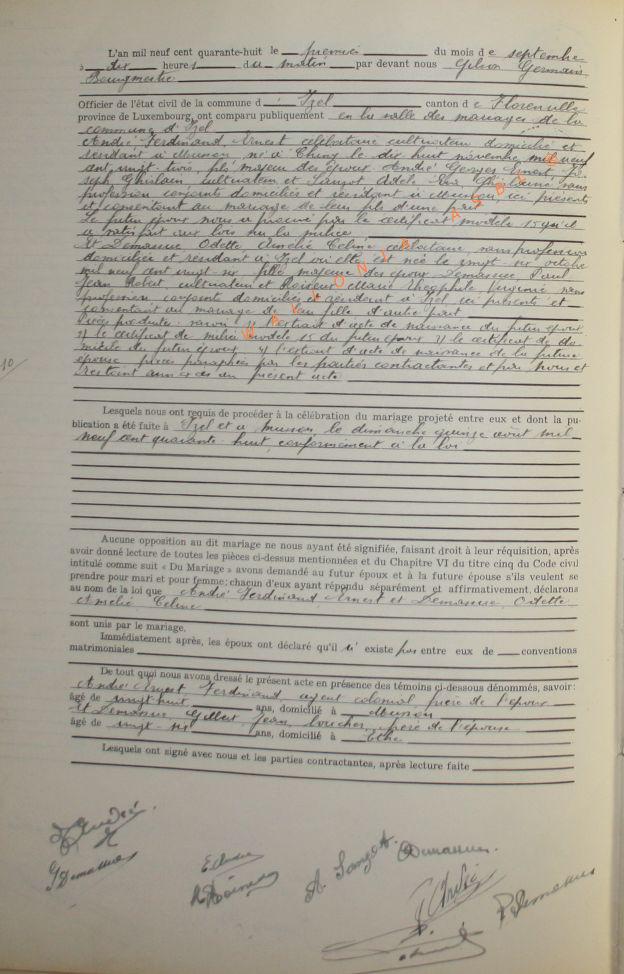 L'an mil neuf cent quarante-huit le premier du mois de septembre
à dix heures du matin par devant nous Gilson Germain
Bourgmestre
Officier de l'état civil de la commune d' Izel canton de Florenville
province de Luxembourg, ont comparu publiquement en la salle des mariages de la
commune d'Izel
André, Ferdinand, Ernest célibataire cultivateur domicilié et
résidant à né à Chiny le dix huit novembre mil neuf
cent vingt-trois, fils majeur des époux André Georges Ernest,
Ghislain cultivateur et Sangot Adèle sans
profession conjoints domiciliés et résidant à ici présents
et consentant au mariage de leur fils d'une part
Le futur époux nous a prouvé par le certificat modèle 15 qu'il
a satisfait aux lois sur la milice
Et Demasure, Odette Amélie Céline célibataire, sans profession
domiciliée et résidant à Izel où elle est née le vingt-six octobre
mil neuf cent vingt-six fille majeure des époux Demasure, Paul
Jean cultivateur et Marie Théophile Virginie sans
profession, conjoints domiciliés et résidant à Izel ici présents et
consentant au mariage de leur fille d'autre part
Pièces produites: savoir: 1) l'extrait d'acte de naissance du futur époux
2) le certificat de milice modèle 15 du futur époux 3) le certificat de do-
micile du futur époux 4) l'extrait d'acte de naissance de la future
épouse pièces paraphées par les parties contractantes et par nous et
restant annexées au présent acte
10/
Lesquels nous ont requis de procéder à la célébration du mariage projeté entre eux et dont la pu-
blication a été faite à Izel et à le dimanche quinze août mil
neuf cent quarante huit, conformément à la loi
Aucune opposition au dit mariage ne nous ayant été signifiée, faisant droit à leur réquisition, après
avoir donné lecture de toutes les pièces ci-dessus mentionnées et du Chapitre VI du titre cinq du Code civil
intitulé comme suit « Du Mariage » avons demandé au futur époux et à la future épouse s'ils veulent se
prendre pour mari et pour femme; chacun d'eux ayant répondu séparément et affirmativement, déclarons
au nom de la loi que André Ferdinand Ernest et Demasure, Odette
Amélie Céline
sont unis par le mariage.
Immédiatement après, les époux ont déclaré qu'il n'existe pas entre eux de conventions
matrimoniales
De tout quoi nous avons dressé le présent acte en présence des témoins ci-dessous dénommés, savoir:
André Ernest, Ferdinand agent colonial frère de l'époux
âgé de vingt huit ans, domicilié à
et Demasure, Gilbert, Jean, boucher, frère de l'épouse
âgé de vingt-six ans, domicilié à Ethe
Lesquels ont signé avec nous et les parties contractantes, après lecture faite
F André
G Demasure
E André
A. Sangot
O Demasure
G. André
P. Demasure